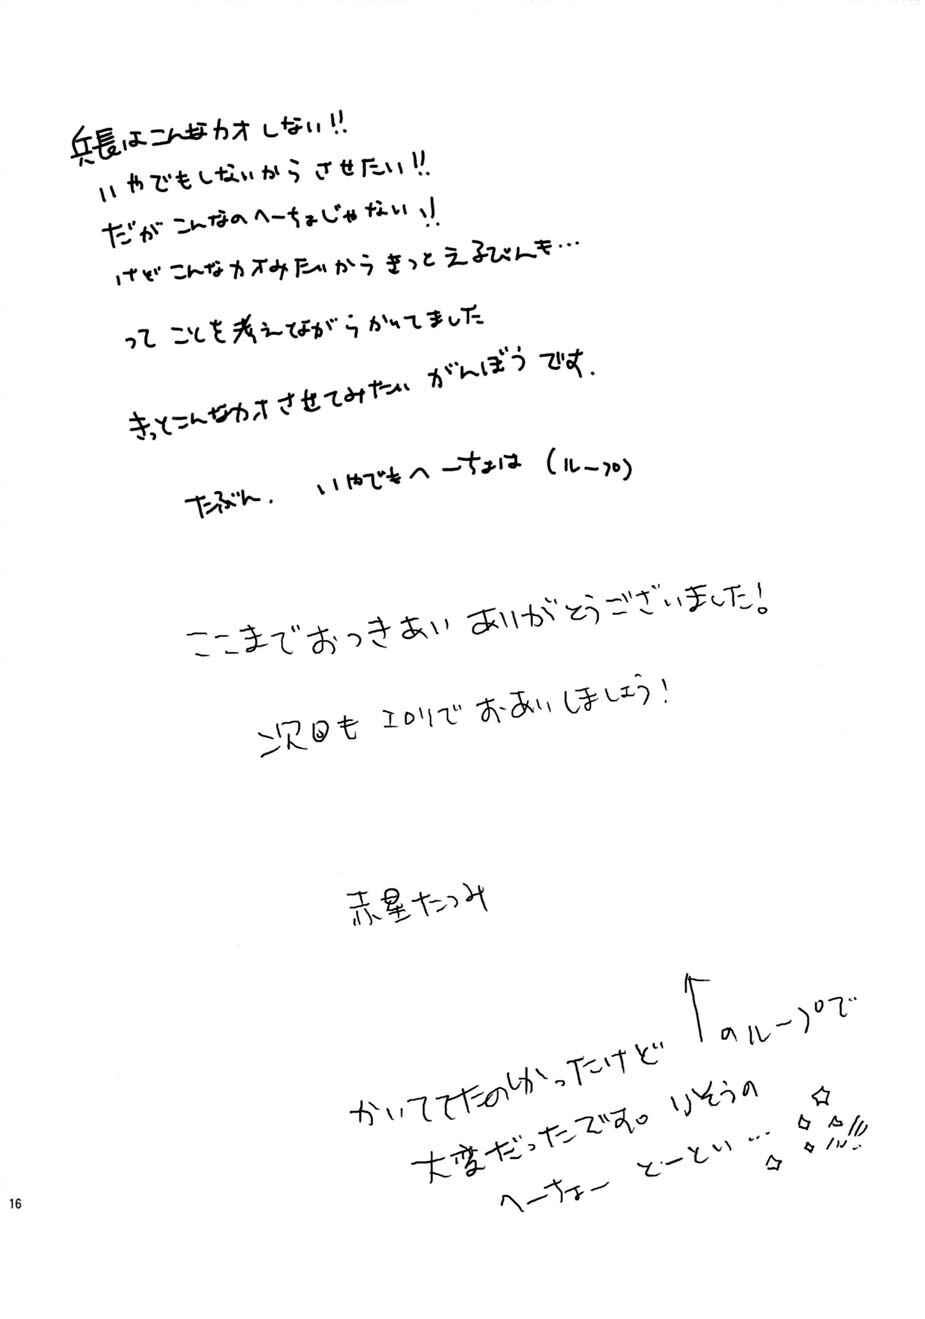 兵長はこんなカオしない!!
いやでもしないからさせたい!!
だがこんなのへーちょじゃない!!
けどこんなカオみたいからきっとえるびんも…
ってことを考えながらかいてました
きっとこんなカオさせてみたいがんぼうです.
たぶん. いやでもへーちょは (ループ)
ここまでおつきあいありがとうございました!
次回もエロリでおあいしましょう!
赤星たつみ
↑のループで
かいててたのしかったけど
大変だったです。りそうの
へーちょー どーとい…
16